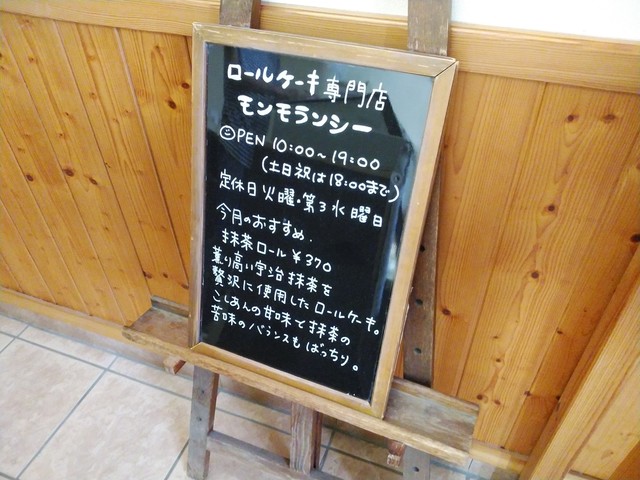 ロールケーキ専門店
モンモランシー
OPEN 10:00~19:00
(土日祝は18:00まで)
定休日火曜・第3水曜日
今月のおすすめ.
抹茶ロール¥370
薫り高い宇治抹茶を
贅沢に使用したロールケーキ。
こしあんの甘味で抹茶の
苦味のバランスもばっちり。